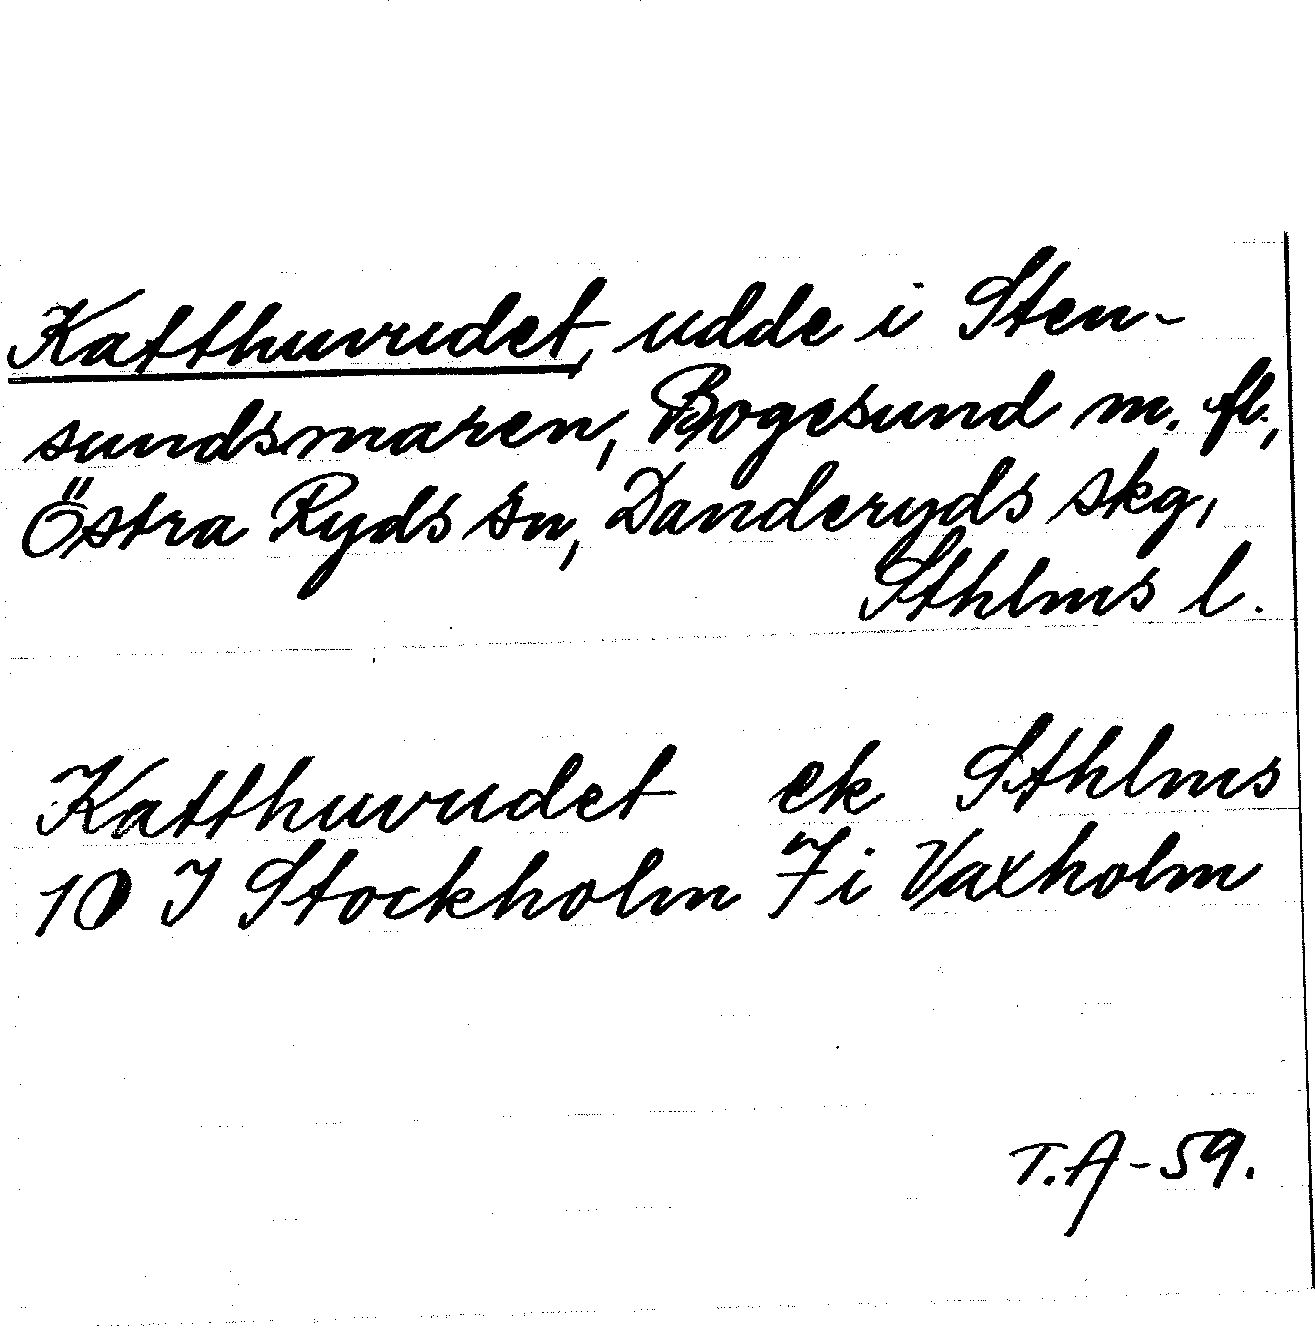 Katthuvudet, udde i Sten-
sundsmaren, Bogesund m. fl.,
Östra Ryds sn, Danderyds skg,
Sthlms l.
Katthuvudet ek Sthlms
10 I Stockholm 7 i Vaxholm
T.A-59.